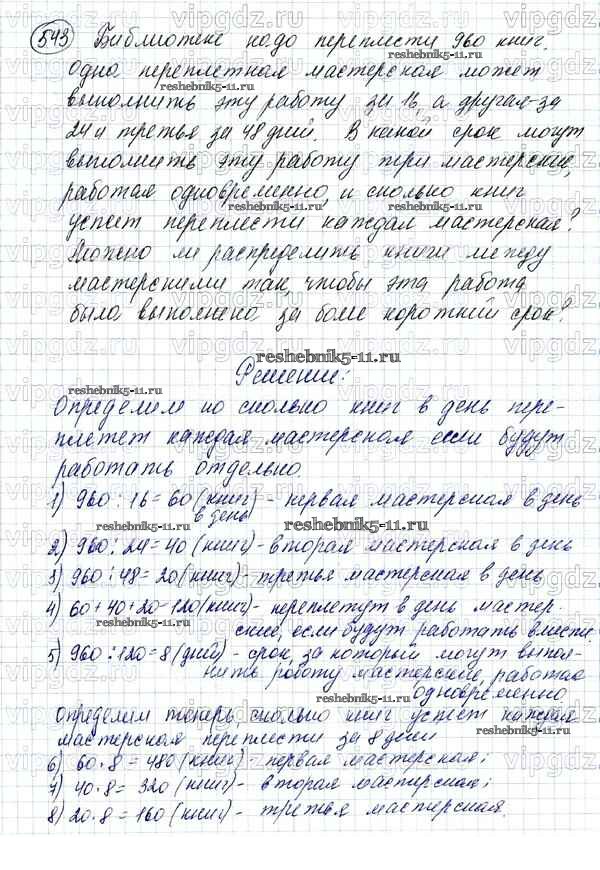 543 Библиотеке надо переплести 960 книг.
Одна переплетная мастерская может
reshebnik5-11.ru
выполнить эту работу за 16, а другая-за
24 и третья за 48 дней. В какой срок могут
reshebnik5-11.ru
выполнить эту работу три мастерские,
работая одновременно, и сколько книг
reshebnik5-11.ru
успеет переплести каждая мастерская?
Можно ли распределить книги между
мастерскими так, чтобы эта работа
была выполнена за более короткий срок?
reshebnik5-11.ru
Решение:
reshebnik5-11.ru
Определим по сколько книг в день пере-
плетет каждая мастерская если будут
работать отдельно.
1) 960 : 16 = 60 (книг) - первая мастерская в день
в день
reshebnik5-11.ru
2) 960 : 24 = 40 (книг) - вторая мастерская в день
3) 960 : 48 = 20 (книг) - третья мастерская в день
4) 60 + 40 + 20 = 120 (книг) - переплетут в день мастер-
ские, если будут работать вместе.
5) 960 : 120 = 8 (дней) - срок, за который могут выпол-
нить работу мастерские, работая
одновременно
reshebnik5-11.ru
Определим теперь, сколько книг успеет каждая
мастерская переплести за 8 дней
6) 60 · 8 = 480 (книг) - первая мастерская;
7) 40 · 8 = 320 (книг) - вторая мастерская;
8) 20 · 8 = 160 (книг) - третья мастерская.
vipgdz.ru